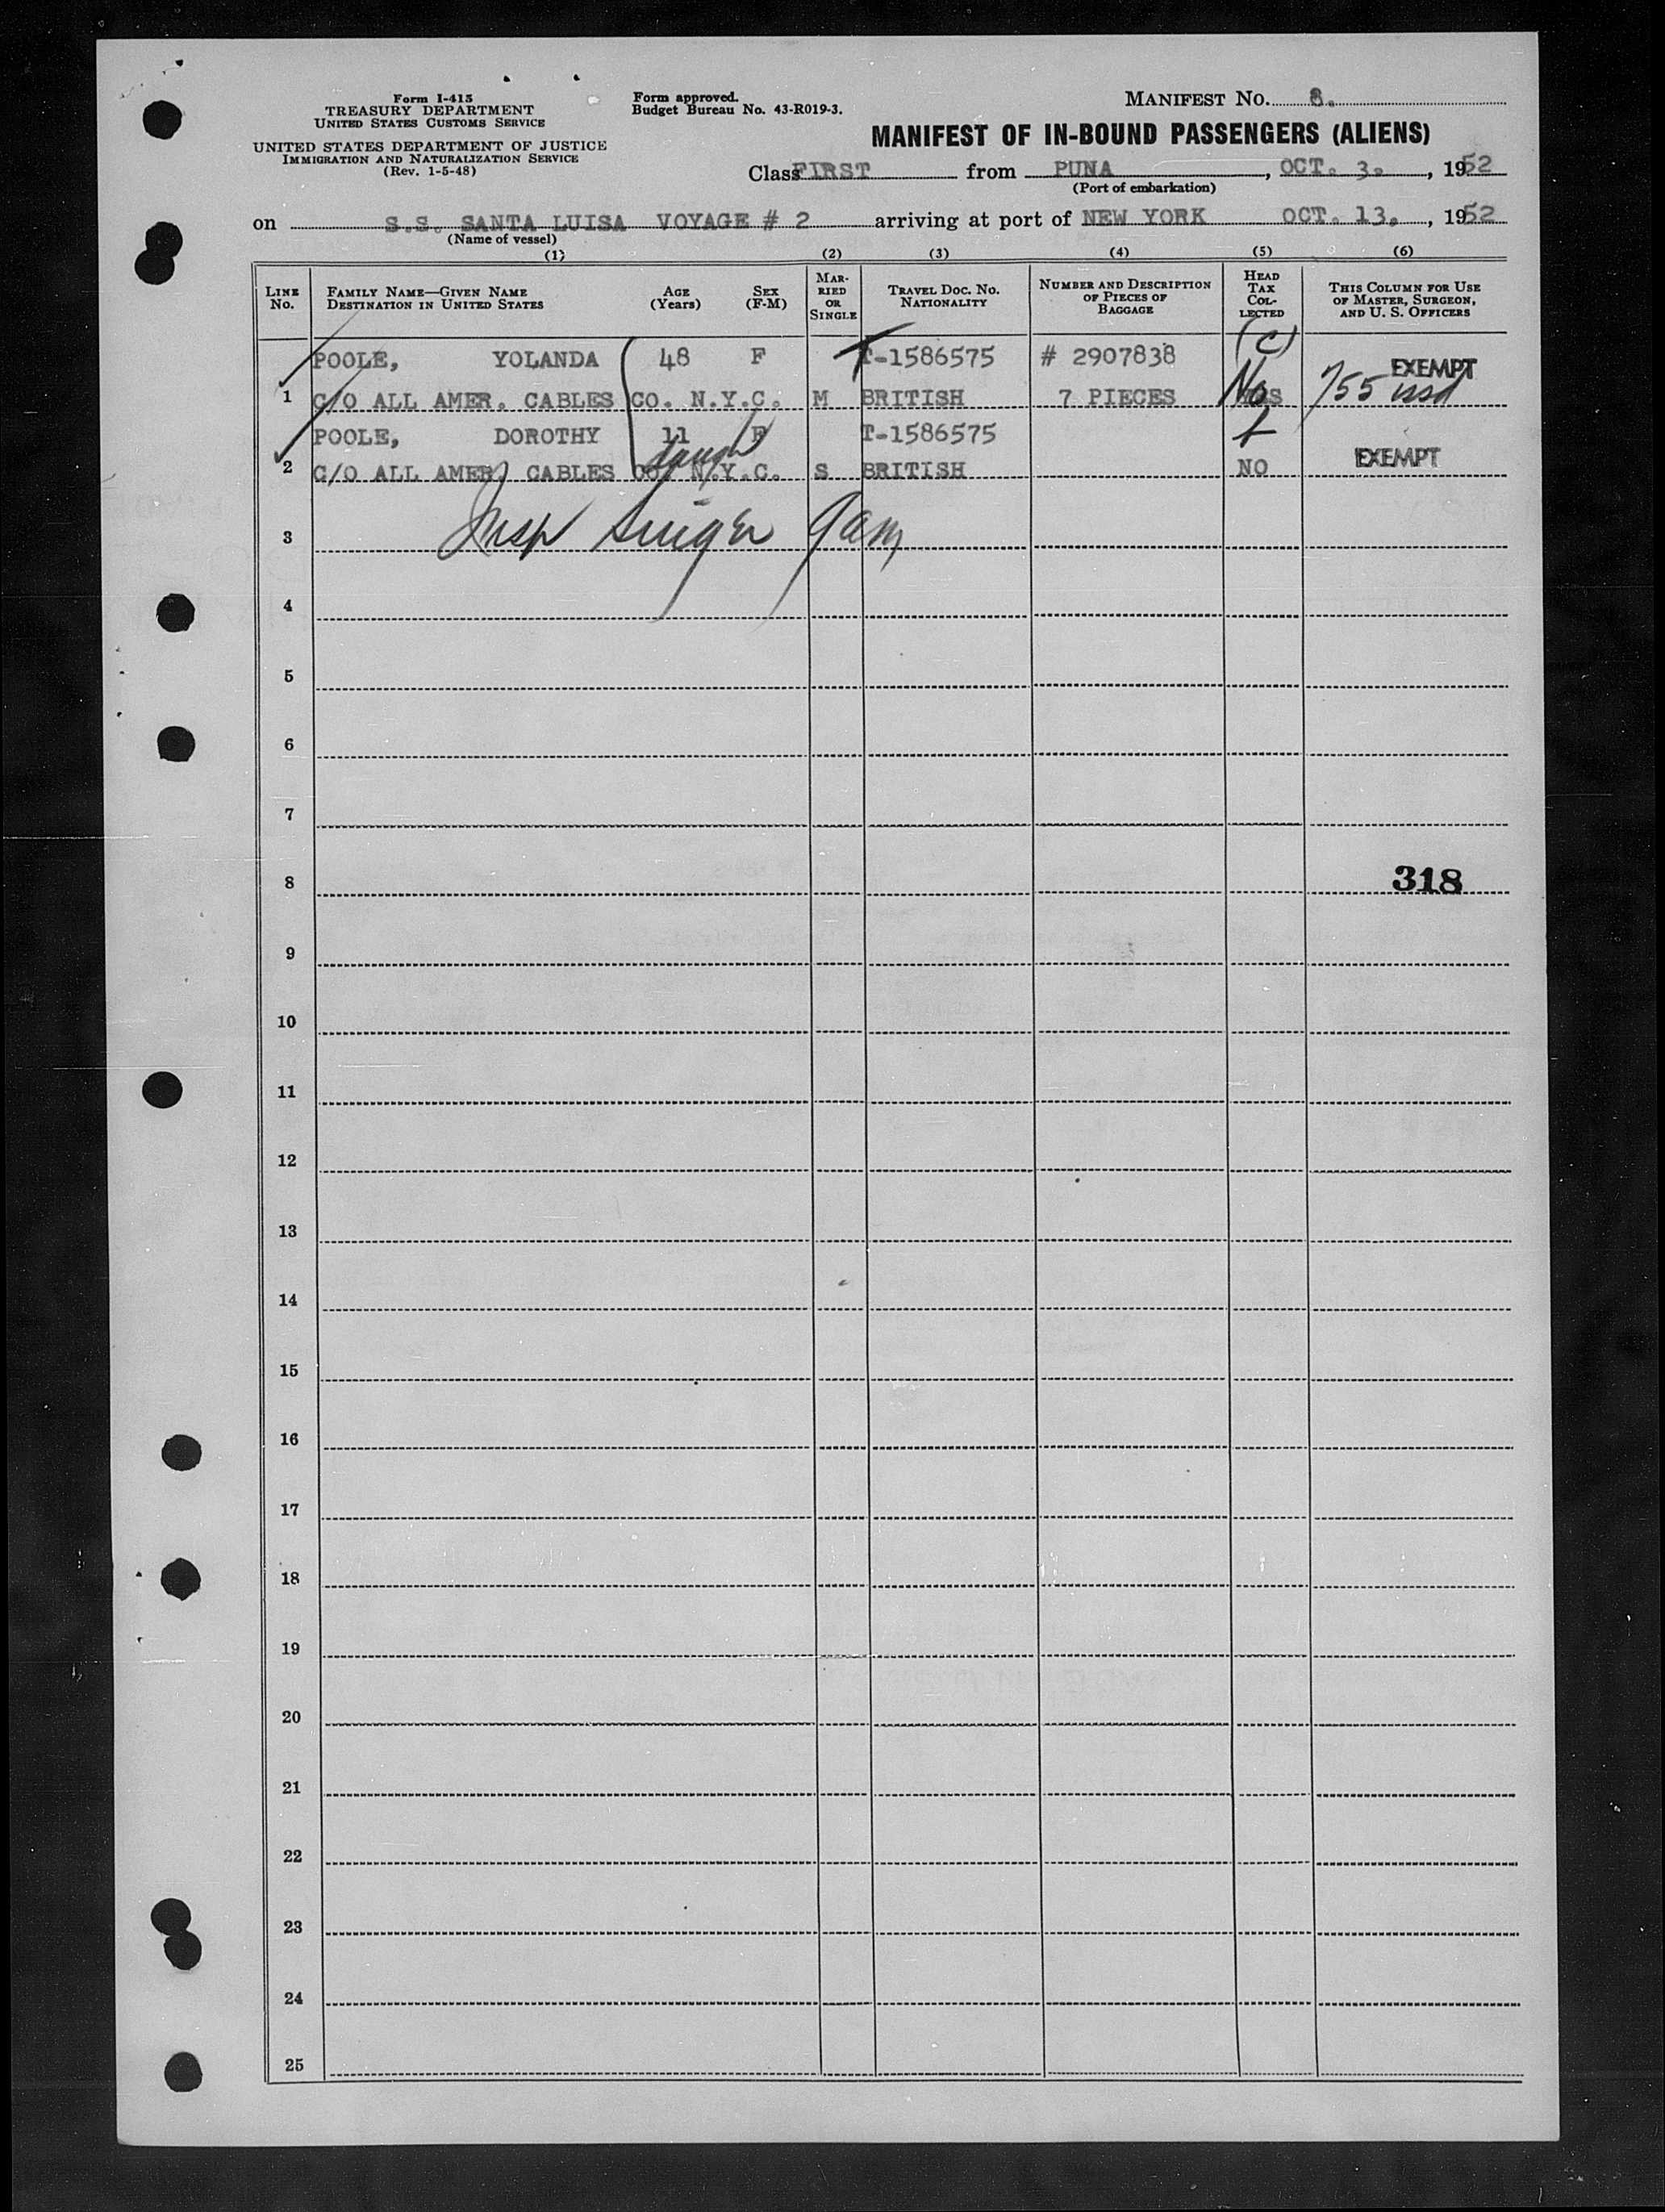 Form I-415
TREASURY DEPARTMENT
UNITED STATES CUSTOMS SERVICE
UNITED STATES DEPARTMENT OF JUSTICE
IMMIGRATION AND NATURALIZATION SERVICE
(Rev. 1-5-48)
Form approved.
Budget Bureau No. 43-R019-3.
MANIFEST NO. 8.
MANIFEST OF IN-BOUND PASSENGERS (ALIENS)
Class FIRST from PUNA, OCT. 3., 1952
(Port of embarkation)
on S.S. SANTA LUISA VOYAGE # 2 arriving at port of NEW YORK OCT. 13., 1952
(Name of vessel)
(1) (2) (3) (4) (5) (6)
LINE NO.
FAMILY NAME—GIVEN NAME
DESTINATION IN UNITED STATES
AGE (Years)
SEX (F-M)
MARRIED OR SINGLE
TRAVEL DOC. NO.
NATIONALITY
NUMBER AND DESCRIPTION OF PIECES OF BAGGAGE
HEAD TAX COLLECTED
THIS COLUMN FOR USE OF MASTER, SURGEON, AND U. S. OFFICERS
POOLE, YOLANDA 48 F T-1586575 # 2907838 (C) EXEMPT
1 C/O ALL AMER. CABLES CO. N.Y.C. M BRITISH 7 PIECES No 755
POOLE, DOROTHY 11 F T-1586575
2 C/O ALL AMER. CABLES CO. N.Y.C. S BRITISH NO EXEMPT
3 Insp Singer
4
5
6
7
8 318
9
10
11
12
13
14
15
16
17
18
19
20
21
22
23
24
25